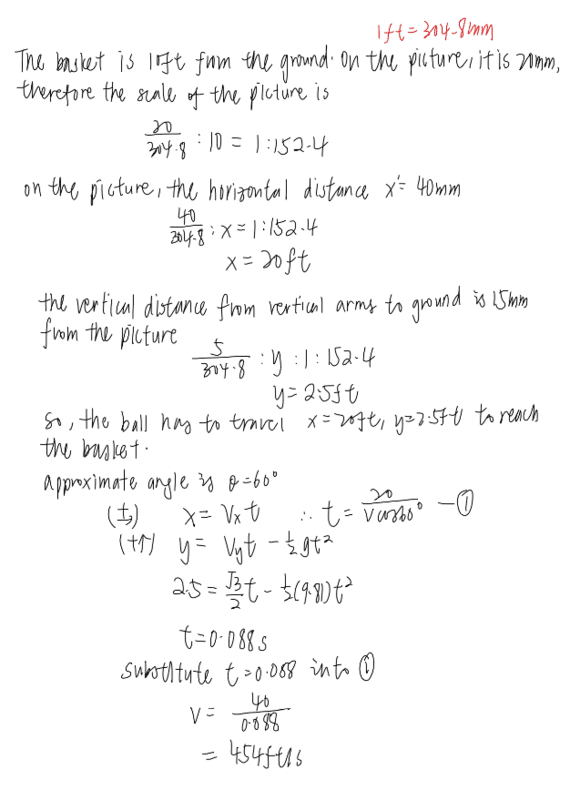 1ft = 304.8mm
The basket is 10ft from the ground. On the picture, it is 20mm,
therefore the scale of the picture is
20/304.8 : 10 = 1:152.4
on the picture, the horizontal distance x' = 40mm
40/304.8 : x = 1:152.4
x = 20ft
the vertical distance from vertical arms to ground is 15mm
from the picture
5/304.8 : y : 1 : 152.4
y = 2.5ft
so, the ball has to travel x=20ft, y=2.5ft to reach
the basket.
approximate angle is θ=60°
(→+) x = Vxt ∴ t = 20/Vcos60° —①
(+↑) y = Vyt - ½gt²
2.5 = √3/2 t - ½(9.81)t²
t=0.088s
substitute t=0.088 into ①
V = 40/0.088
= 454ft/s